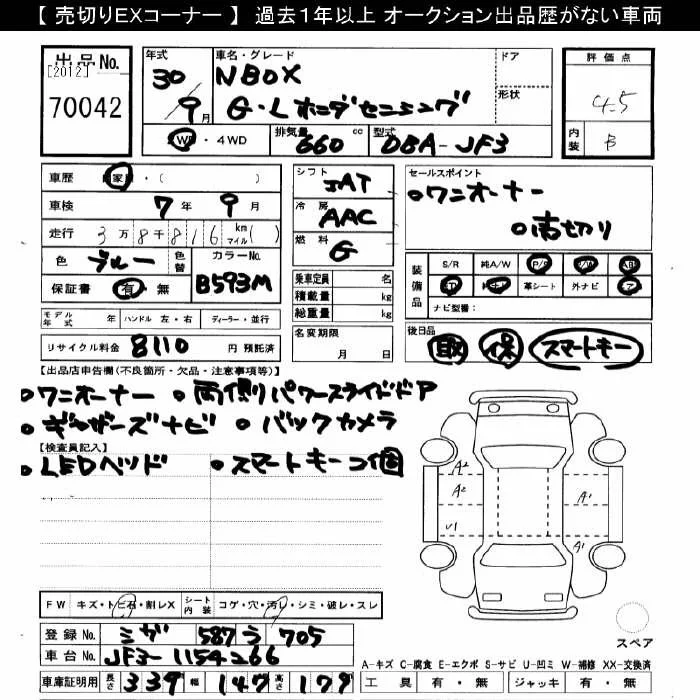 【 売切りEXコーナー 】 過去１年以上 オークション出品歴がない車両
出品No. [2012] 70042
年式 30年 9月
車名・グレード NBOX
G・L ホンダセンシング
ドア
形状
評価点 4.5
内装 B
2WD ・ 4WD
排気量 660 cc
型式 DBA-JF3
車歴 自家用・( )
車検 7年 9月
走行 3万8千816 km マイル( )
色 ブルー 色替
カラーNo. B593M
保証書 有・無
シフト AT
冷房 AAC
燃料 G
乗車定員 名
積載量 kg
総重量 kg
セールスポイント
ワンオーナー
売切り
装備品 S/R 純A/W P/S P/W AB
革シート 外ナビ
ナビ型番：
モデル年式 年 ハンドル 左・右 ディーラー・並行
リサイクル料金 8110 円 預託済
名変期限 月 日
後日品 取 保 スマートキー
【出品店申告欄(不良箇所・欠品・注意事項等)】
ワンオーナー 両側パワースライドドア
ギャザーズナビ バックカメラ
【検査員記入】
LEDヘッド スマートキー2個
A2
A2
U1
A1
A1
FW キズ・トビ石・割レX シート内装 コゲ・穴・汚レ・シミ・破レ・スレ
スペア
登録No. 587 う 705
車台No. JF3-1154266
車庫証明用 長さ 339 幅 147 高さ 179
A-キズ C-腐食 E-エクボ S-サビ U-凹ミ W-補修 XX-交換済
工具 有・無 ジャッキ 有・無